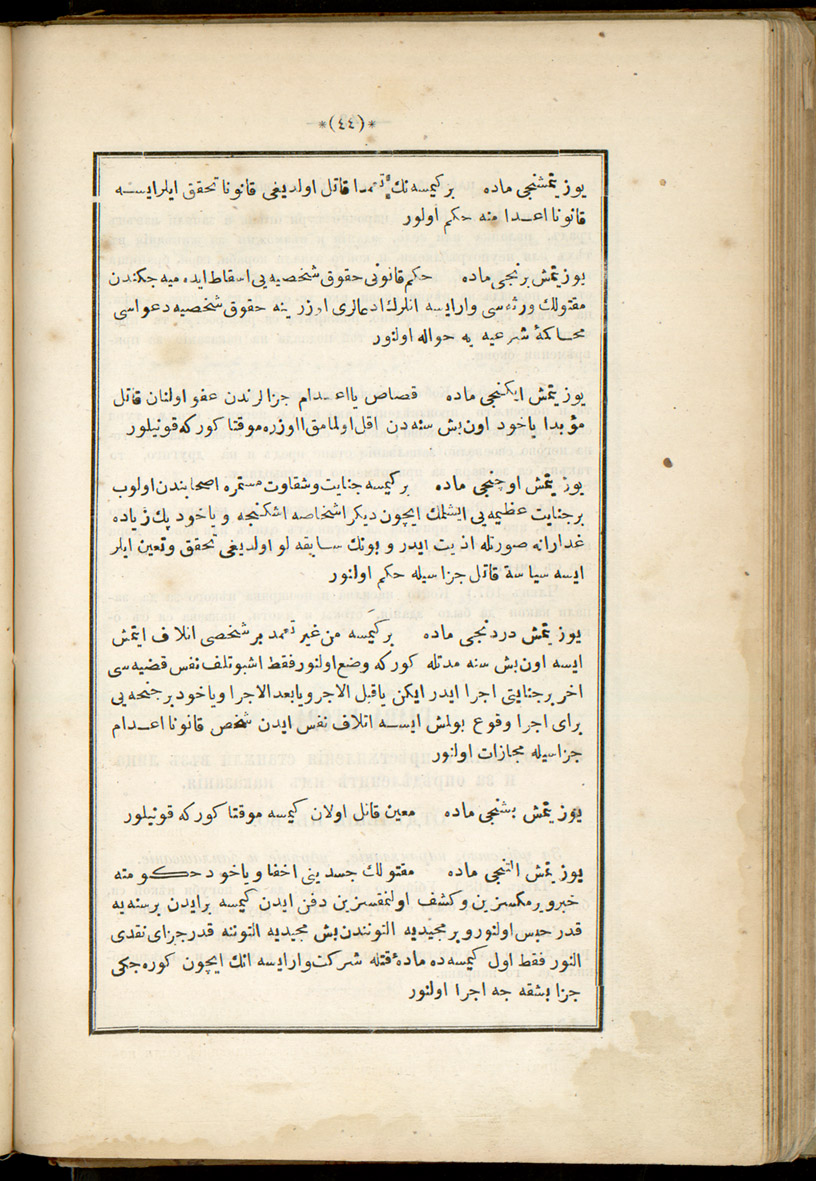 *(٤٤)*
یوز یتمشنجی ماده برکیمسه‌نك تعمدا قاتل اولدیغی قانونا تحقق ایلرایسه
قانونا اعدامنه حکم اولور
یوز یتمش برنجی ماده حکم قانونی حقوق شخصیه‌یی اسقاط ایده‌میه‌جکندن
مقتولك ورثه‌سی وارایسه انلرك ادعالری اوزرینه حقوق شخصیه دعواسی
محاکمۀ شرعیه‌یه حواله اولنور
یوز یتمش ایکنجی ماده قصاص یااعدام جزالرندن عفو اولنان قاتل
مؤبدا یاخود اون‌بش سنه‌دن اقل اولمامق اوزره موقتا کورکه قونیلور
یوز یتمش اوچنجی ماده برکیمسه جنایت وشقاوت مستمره اصحابندن اولوب
برجنایت عظیمه‌یی ایشلمك ایچون دیکر اشخاصه اشکنجه ویاخود پك زیاده
غدارانه صورتله اذیت ایدر و بونك سابقه‌لو اولدیغی تحقق وتعین ایلر
ایسه سیاسة قاتل جزاسیله حکم اولنور
یوز یتمش دردنجی ماده برکیمسه من غیر تعمد برشخصی اتلاف ایتمش
ایسه اون‌بش سنه مدتله کورکه وضع اولنور فقط اشبو تلف نفس قضیه‌سی
اخر برجنایتی اجرا ایدر ایکن یاقبل الاجر ویابعد الاجرا ویاخود برجنحه‌یی
برای اجرا وقوع بولمش ایسه اتلاف نفس ایدن شخص قانونا اعدام
جزاسیله مجازات اولنور
یوز یتمش بشنجی ماده معین قاتل اولان کیمسه موقتا کورکه قونیلور
یوز یتمش التنجی ماده مقتولك جسدینی اخفا ویاخود حکومته
خبرویرمکسزین وکشف اولنمقسزین دفن ایدن کیمسه برایدن برسنه‌یه
قدر حبس اولنور وبر مجیدیه التونندن بش مجیدیه التوننه قدر جزای نقدی
النور فقط اول کیمسه‌ده مادۀ قتله شرکت وارایسه انك ایچون کوره‌جکی
جزا بشقه‌جه اجرا اولنور